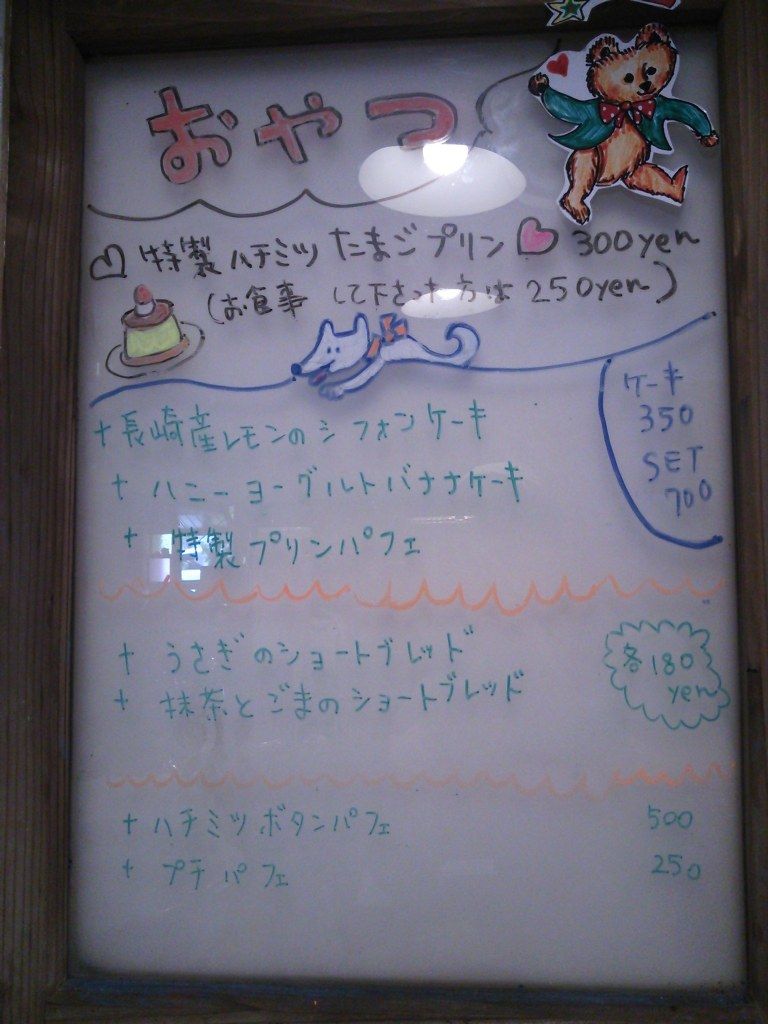 おやつ
特製ハチミツたまごプリン 300yen
(お食事して下さった方は250yen)
ケーキ
350
SET
700
+長崎産レモンのシフォンケーキ
+ハニーヨーグルトバナナケーキ
+特製プリンパフェ
+うさぎのショートブレッド
+抹茶とごまのショートブレッド
各180
yen
+ハチミツボタンパフェ 500
+プチパフェ 250